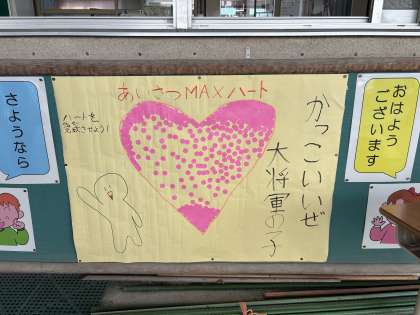 おはよう
ございます
あいさつMAXハート
ハートを
完成させよう!
かっこいいぜ
大将軍の子
さようなら